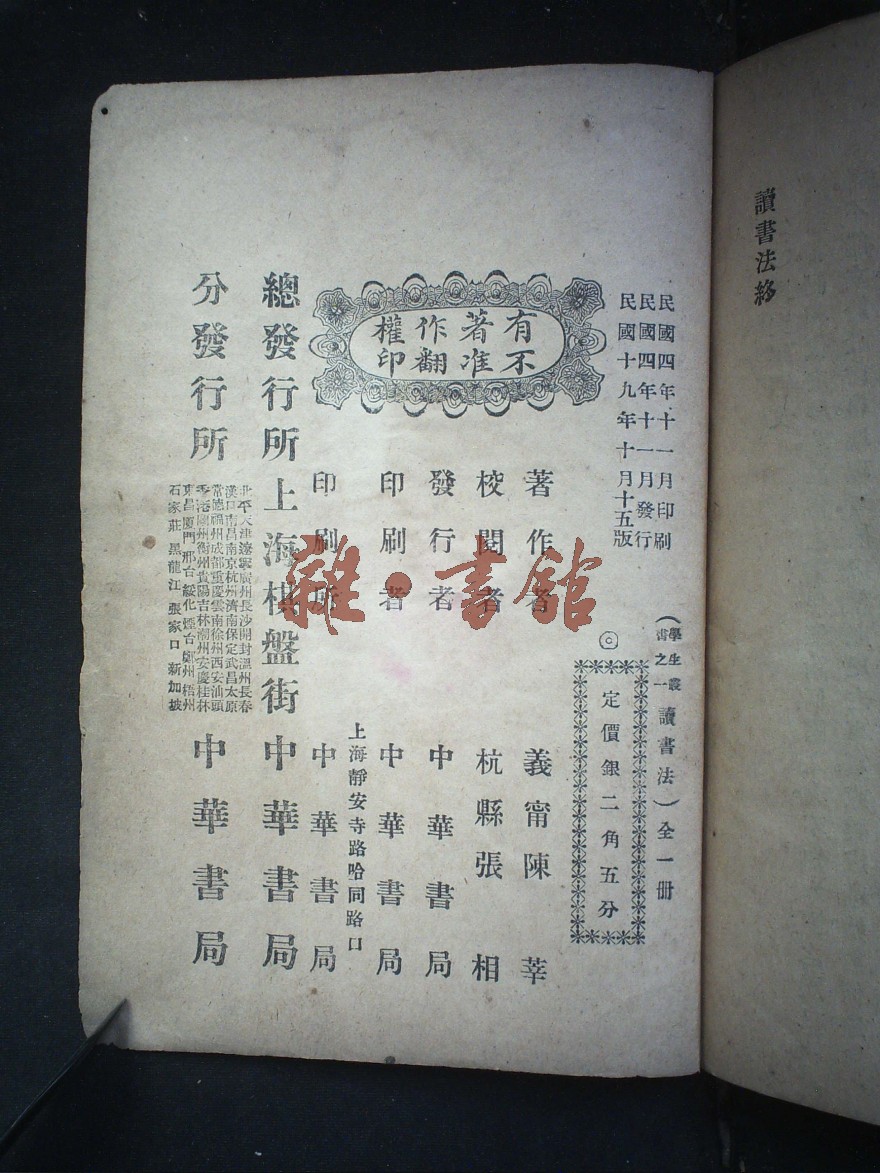 讀書法終
民國四年十一月印刷
民國四年十一月發行
民國十九年十月十五版
（學生叢書之一讀書法）全一冊
◎定價銀二角五分
有著作權
不准翻印
著作者 義甯陳莘
校閱者 杭縣張相
發行者 中華書局
印刷者 中華書局
上海靜安寺路哈同路口
印刷所 中華書局
總發行所 上海棋盤街 中華書局
分發行所 中華書局
北平天津遼寧廣州長沙開封溫州長春
漢口南昌南京杭州濟南保定武昌太原
常德福州成都重慶雲南徐州西安汕頭
香港蘭州衡州貴陽吉林潮州安慶桂林
東昌廈門邢台綏化煙台鄭州梧州
石家莊黑龍江張家口新加坡
雜·書館